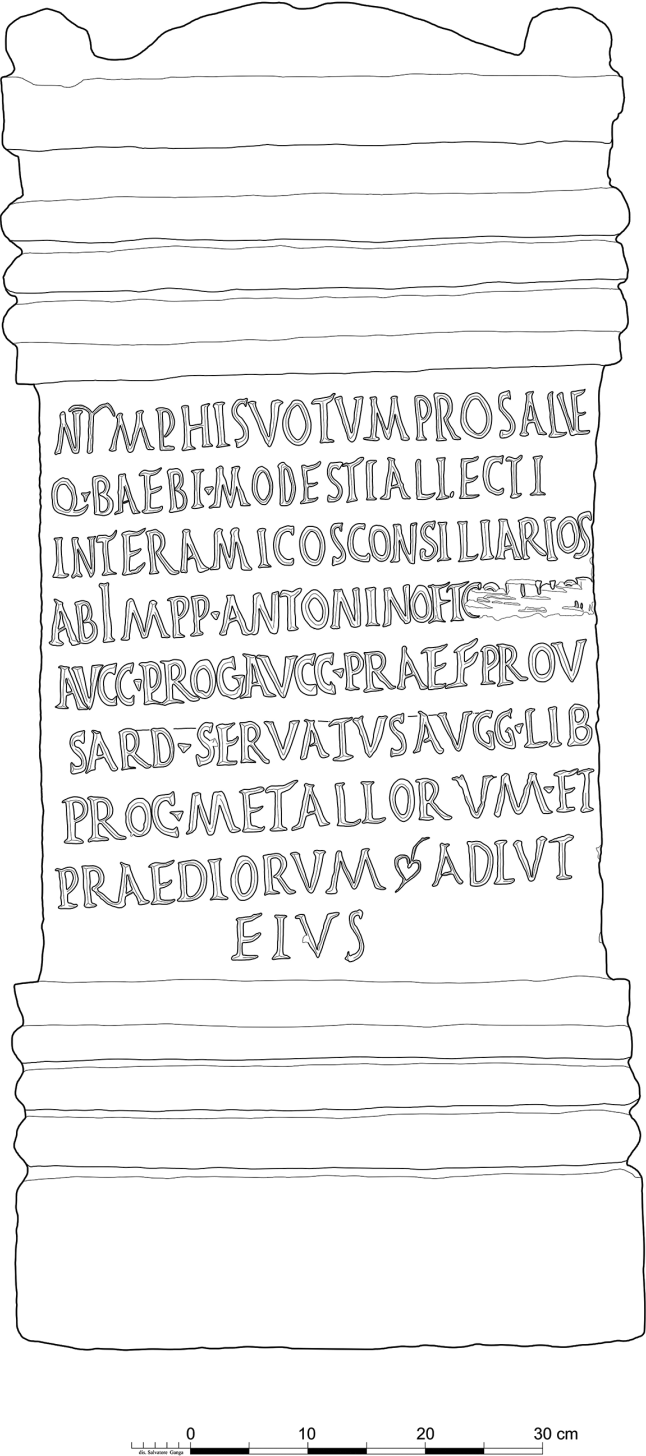 NYMPHIS VOTVM PRO SALVTE
Q·BAEBI·MODESTI ALLECTI
INTER AMICOS CONSILIARIOS
AB IMPP·ANTONINO ET
AVGG·PROC AVGG·PRAEF PROV
SARD·SERVATVS AVGG·LIB
PROC·METALLORVM·ET
PRAEDIORVM ❦ ADIVT
EIVS
0 10 20 30 cm
dis. Salvatore Ganga